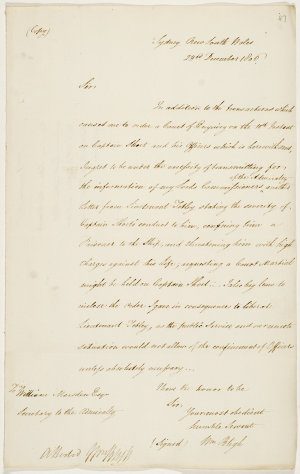 (Copy)
Sydney New South Wales
24th December 1806
Sir
In addition to the transactions which
caused me to order a Court of Enquiry on the Instant
on Captain Short and his Officers which is herewith sent,
I regret to be under the necessity of transmitting for
of the Admiralty
the information of my Lords Commissioners, another
Letter from Lieutenant Tetley stating the severity of
Captain Short's conduct to him, confining him a
Prisoner to the Ship, and threatening him with high
charges against his Life, requesting a Court Martial
might be held on Captain Short. I also beg leave to
inclose the order I gave in consequence to liberate
Lieutenant Tetley, as the public Service and our remote
situation would not allow of the confinement of Officers
unless absolutely necessary.
I have the honor to be
Sir,
Your most obedient
humble Servant
(Signed) Wm Bligh
To William Marsden Esqr
Secretary to the Admiralty
Attested Wm Bligh